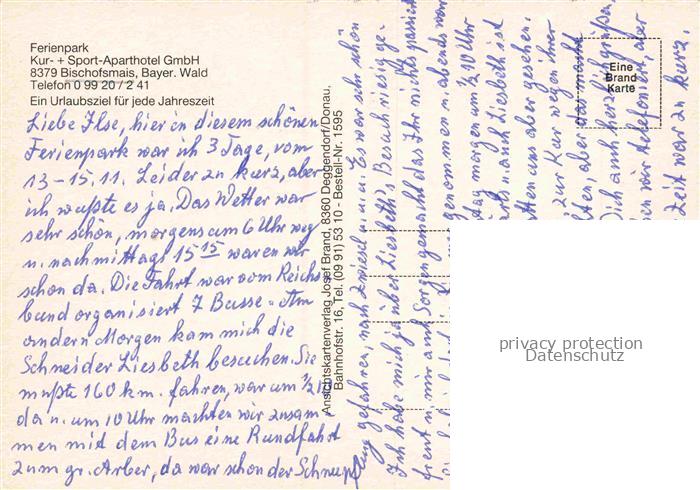 Ferienpark
Kur- + Sport-Aparthotel GmbH
8379 Bischofsmais, Bayer. Wald
Telefon 0 99 20 / 2 41
Ein Urlaubsziel für jede Jahreszeit
Liebe Ilse, hier in diesem schönen
Ferienpark war ich 3 Tage, vom
13-15.11. Leider zu kurz, aber
ich wußte es ja. Das Wetter war
sehr schön, morgens um 6 Uhr weg
u. nachmittags 15 15 waren wir
schon da. Die Fahrt war vom Reichs
bund organisiert 7 Busse. Am
andern Morgen kam mich die
Schneider Liesbeth besuchen. Sie
mußte 160 km. fahren, war um 1/2 10
da u. um 10 Uhr machten wir zusam
men mit dem Bus eine Rundfahrt
zum gr. Arber, da war schon der Schnee
Ansichtskartenverlag Josef Brand, 8360 Deggendorf/Donau,
Bahnhofstr. 16, Tel. (09 91) 53 10 - Bestell-Nr. 1595
gefahren, nach Zwiesel u.u.u. Es war sehr schön
Ich habe mich ja über Liesbeth's Besuch riesig ge-
freut u. mir auch Sorgen gemacht das Ihr nichts passiert
genommen u. abends war
tag morgen um 1/2 10 Uhr
u. auch Liesbeth ist
tten uns aber gesehen.
zur Kur wegen ihrer
ten, aber das macht
Dich auch herzlich grüßen,
en wir telefoniert, aber
Zeit war zu kurz.
Eine
Brand
Karte
privacy protection
Datenschutz